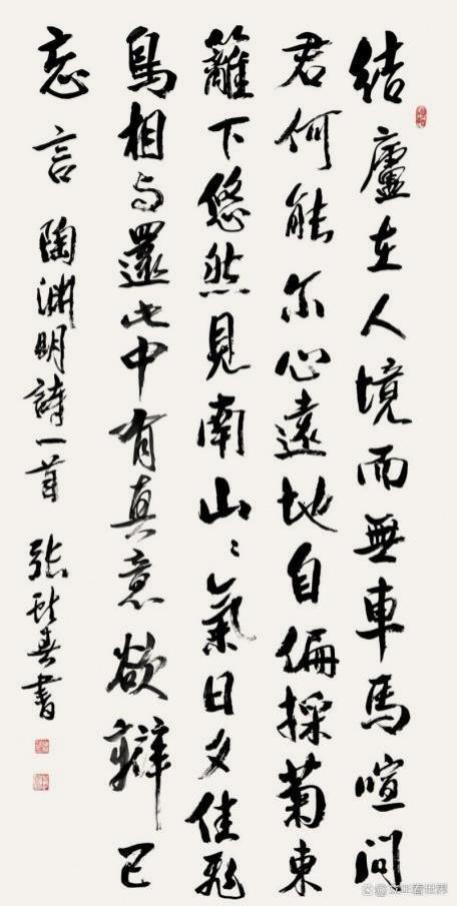 結廬在人境而無車馬喧問
君何能尔心遠地自偏採菊東
籬下悠然見南山〻氣日夕佳飛
鳥相与還此中有真意欲辯已
忘言 陶渊明詩一首 張 書
看世界